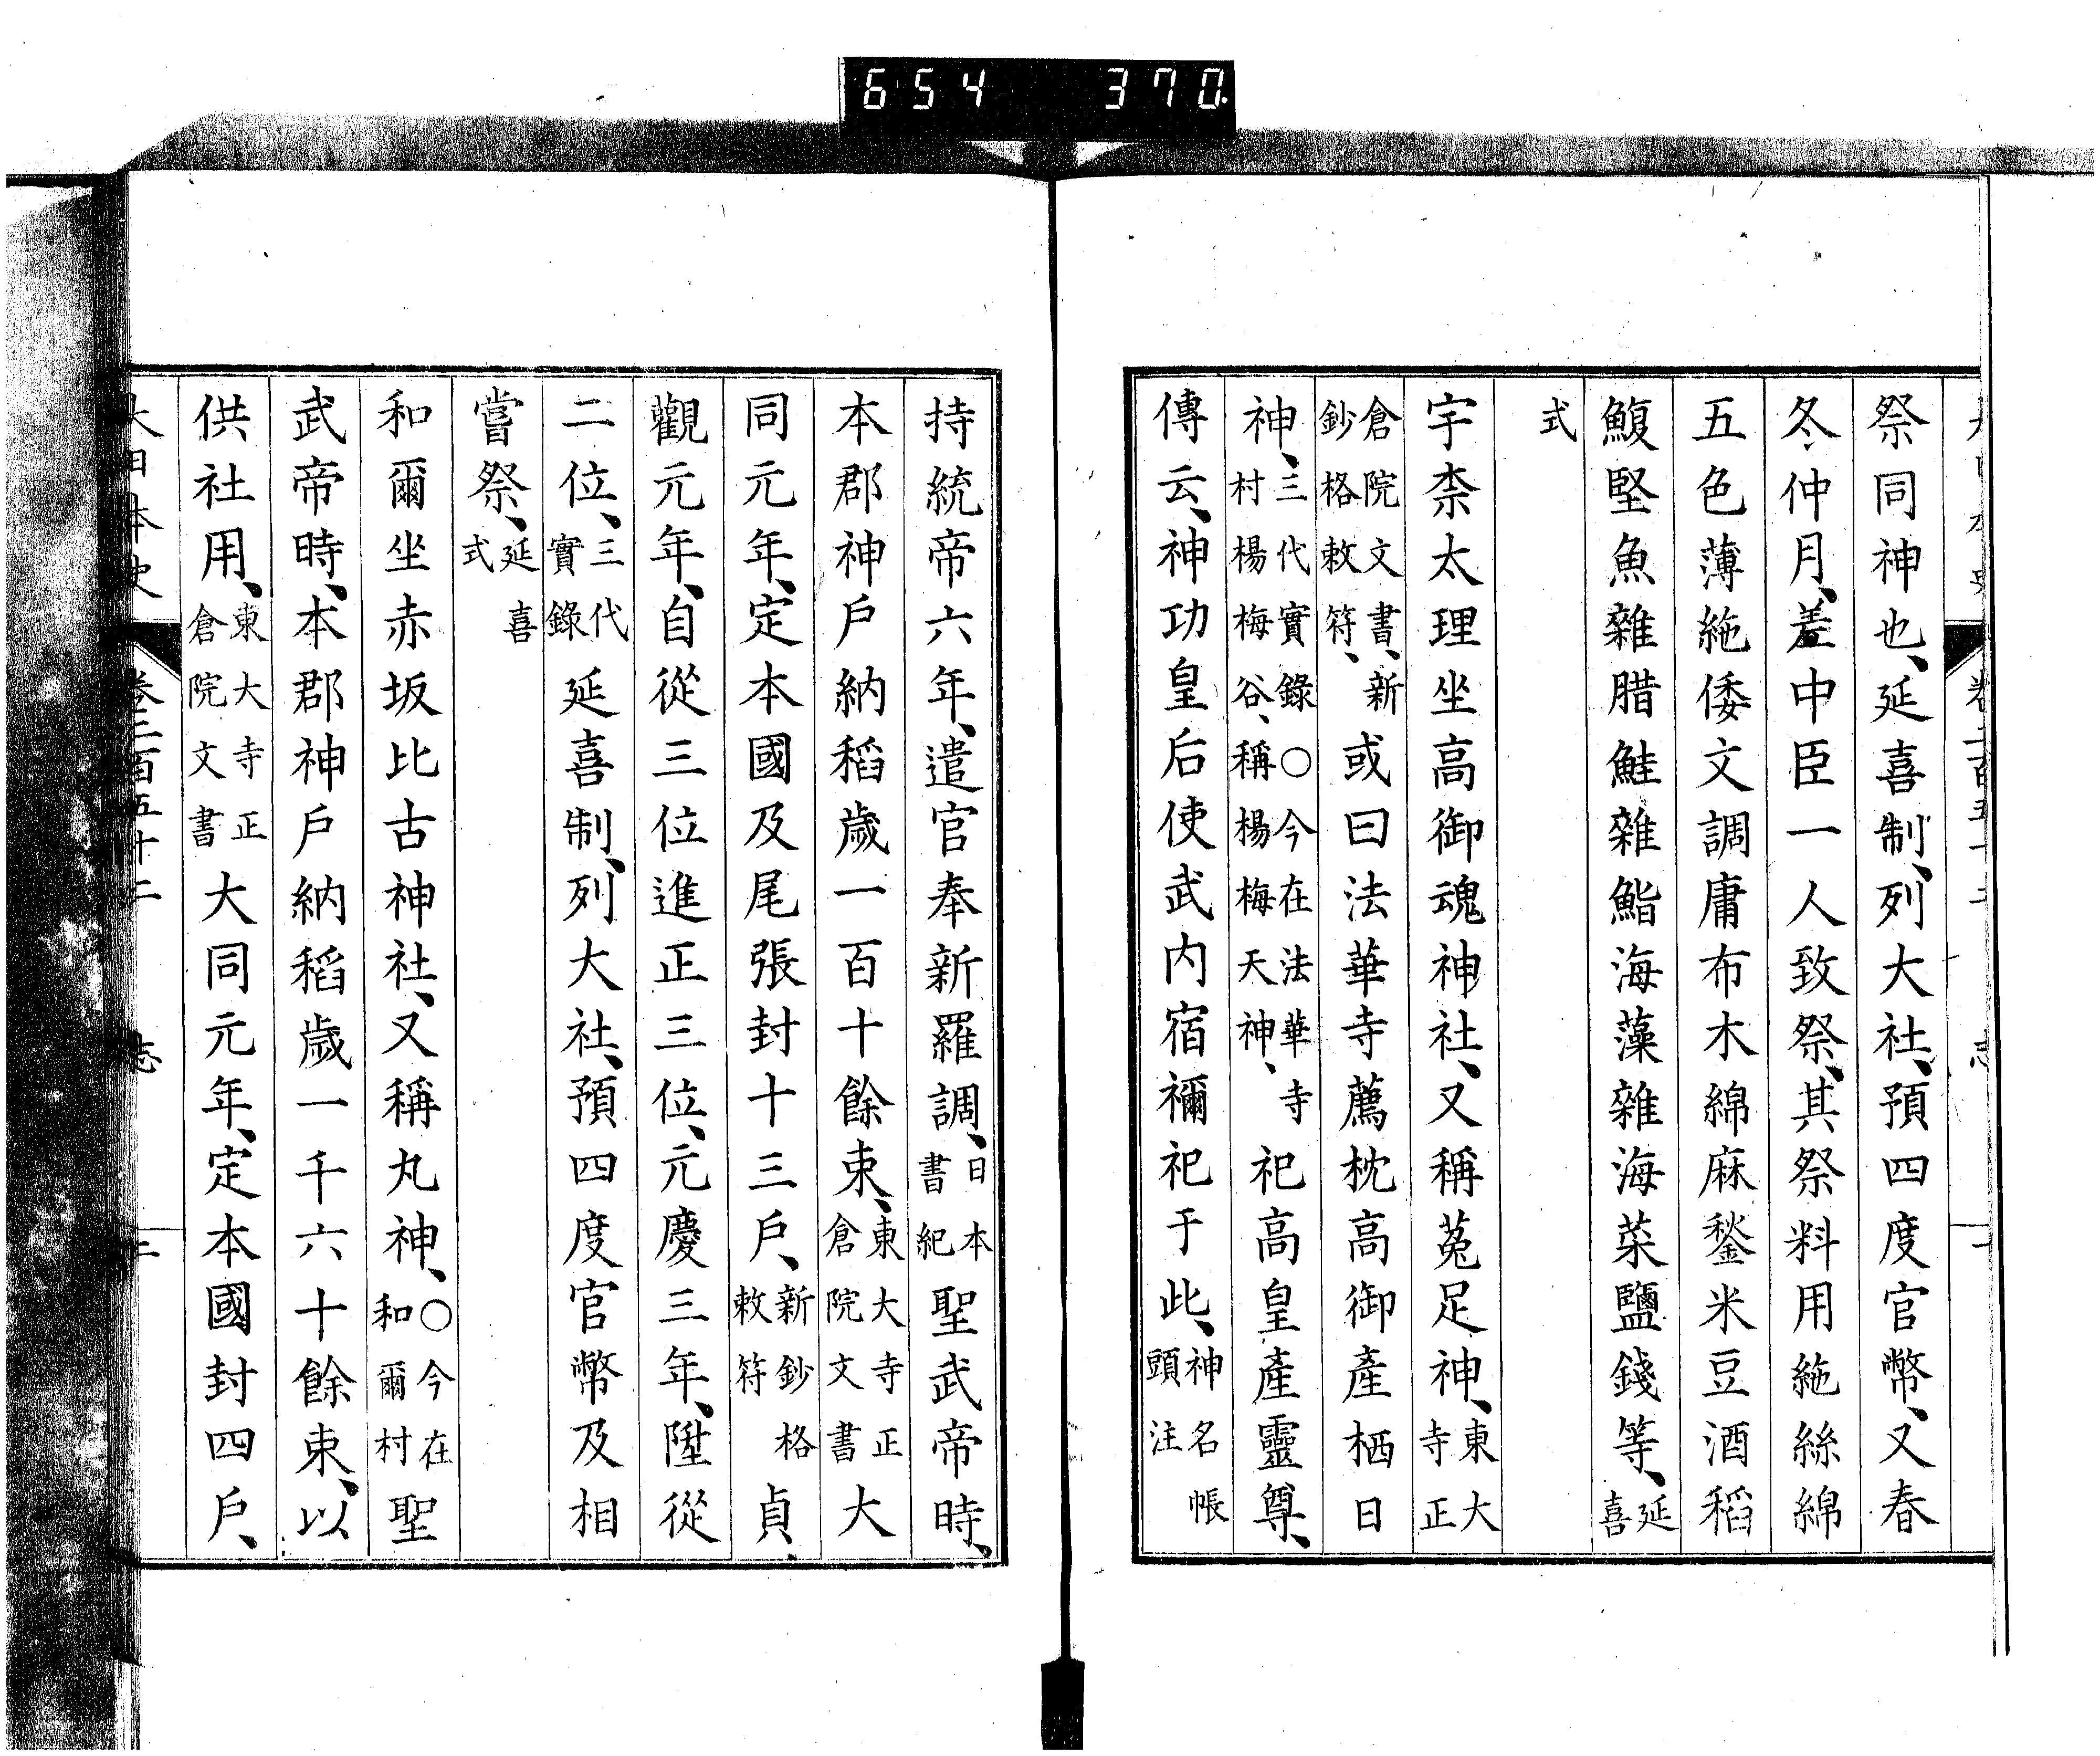 654 370
祭同神也、延喜制、列大社、預四度官幣、又春
冬仲月、差中臣一人致祭、其祭料用絁絲綿
五色薄絁倭文調庸布木綿麻鍫米豆酒稻
鰒堅魚雜腊鮭雜鮨海藻雜海菜鹽錢等、延喜
式
宇柰太理坐高御魂神社、又稱菟足神、東大寺正
倉院文書、新鈔格敕符、或曰法華寺薦枕高御產栖日
神、三代實錄○今在法華寺村楊梅谷、稱楊梅天神、祀高皇產靈尊、
傳云、神功皇后使武內宿禰祀于此、神名帳頭注
持統帝六年、遣官奉新羅調、日本書紀聖武帝時、
本郡神戶納稻歲一百十餘束、東大寺正倉院文書大
同元年、定本國及尾張封十三戶、新鈔格敕符貞
觀元年、自從三位進正三位、元慶三年、陞從
二位、三代實錄延喜制、列大社、預四度官幣及相
嘗祭、延喜式
和爾坐赤坂比古神社、又稱丸神、○今在和爾村聖
武帝時、本郡神戶納稻歲一千六十餘束、以
供社用、東大寺正倉院文書大同元年、定本國封四戶、
大日本史 卷二百五十二 志 二